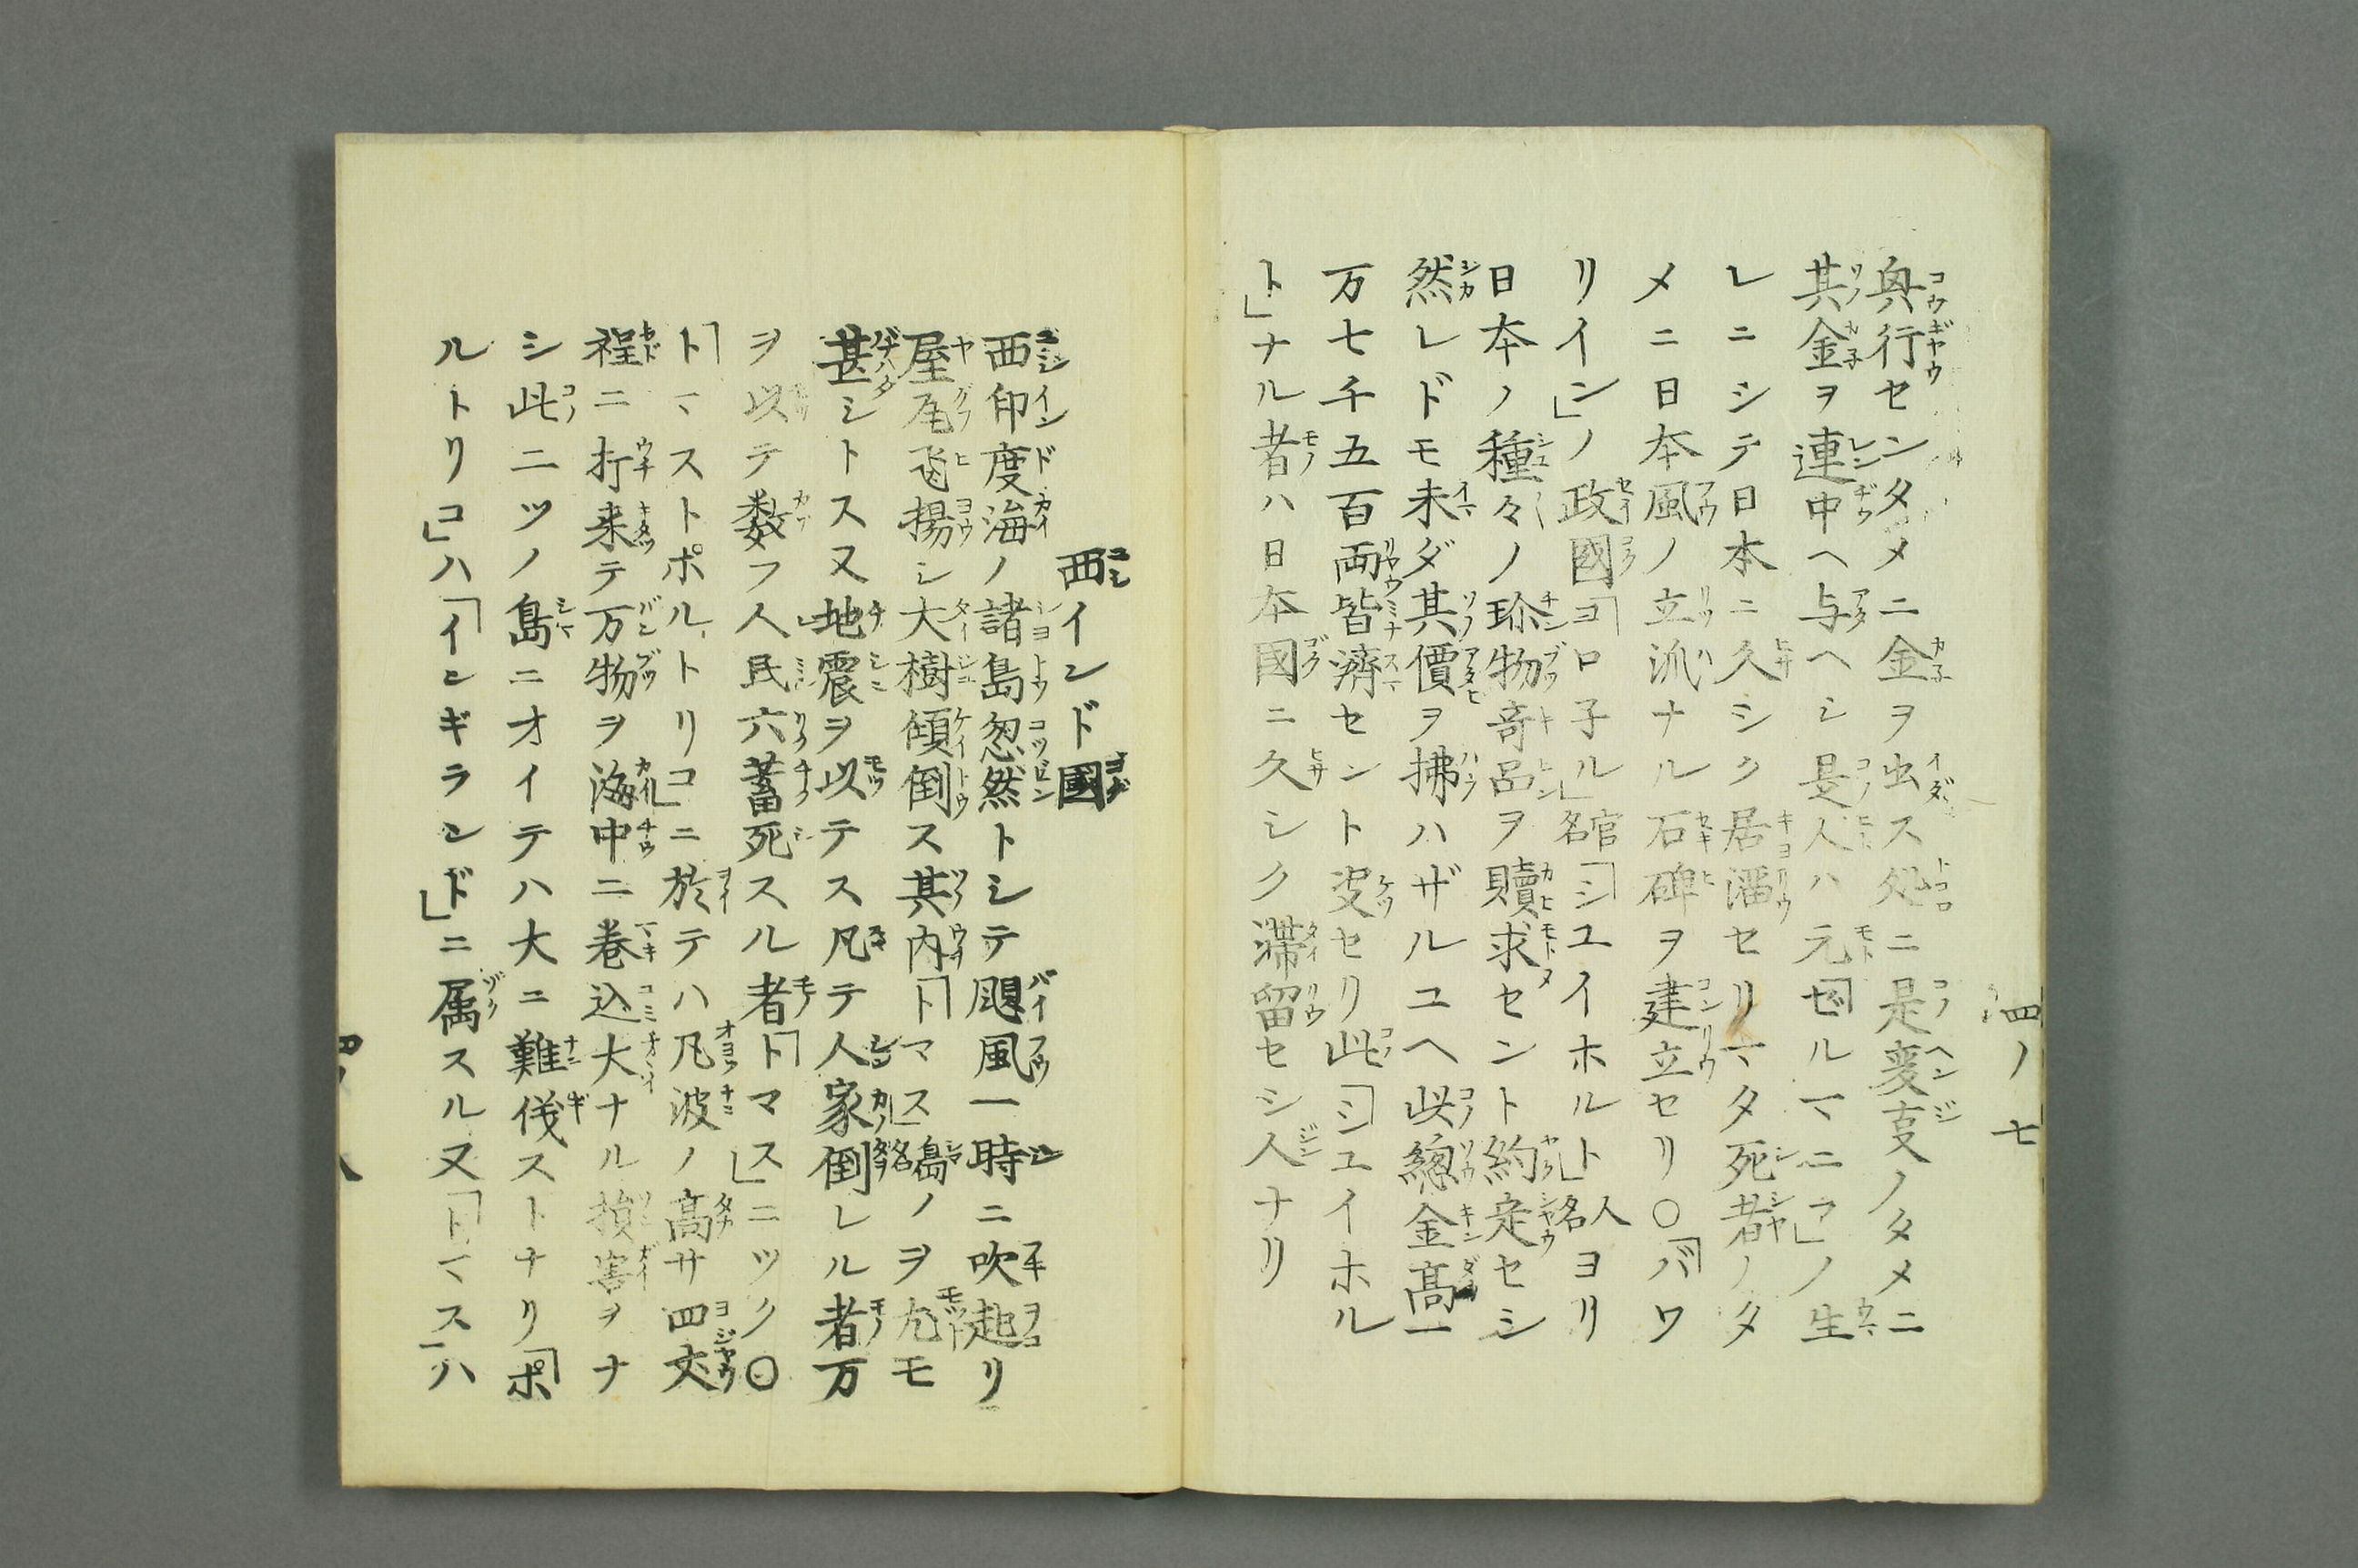 四ノ七
興行センタメニ金ヲ出ス処ニ是変事ノタメニ
其金ヲ連中ヘ与ヘシ是人ハ元「ゼルマニア」ノ生
レニシテ日本ニ久シク居溜セリマタ死者ノタ
メニ日本風ノ立派ナル石碑ヲ建立セリ〇「バワ
リイン」ノ政國「ヨロ子ル」官名「シユイホルト」人名ヨリ
日本ノ種々ノ珍物奇品ヲ贖求セント約定セシ
然レドモ未ダ其價ヲ拂ハザルユヘ此總金高一
万七千五百両皆濟セント定セリ此「シユイホル
ト」ナル者ハ日本國ニ久シク滞留セシ人ナリ
西インド國
西印度海ノ諸島忽然トシテ颶風一時ニ吹起リ
屋尾飛揚シ大樹傾倒ス其内「トマス」島名ノヲ尤モ
甚シトス又地震ヲ以テス凡テ人家倒レル者万
ヲ以テ数フ人民六蓄死スル者「トマス」ニツク〇
「トマストポルトリコ」ニ於テハ凡波ノ高サ四丈
程ニ打来テ万物ヲ海中ニ巻込大ナル損害ヲナ
シ此二ツノ島ニオイテハ大ニ難儀ストナリ「ポ
ルトリコ」ハ「インギランド」ニ属スル又「トマス」ハ